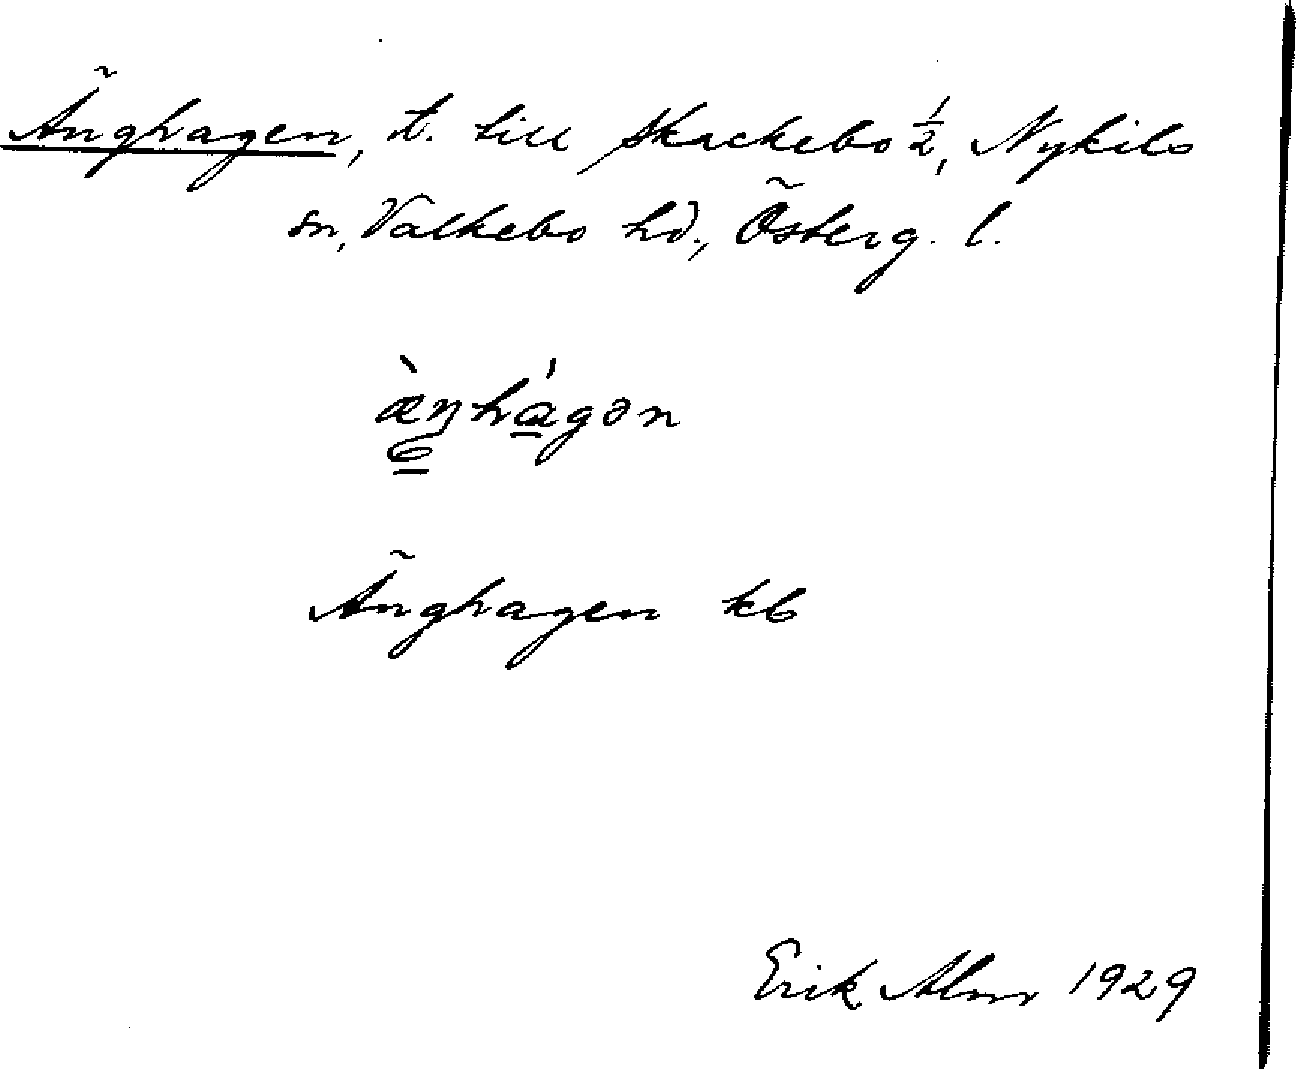 Änghagen, t. till Skackebo ½, Nykils
sn, Valkebo hd., Österg. l.
æ̀ŋhágən
Änghagen kb
Erik Alm 1929